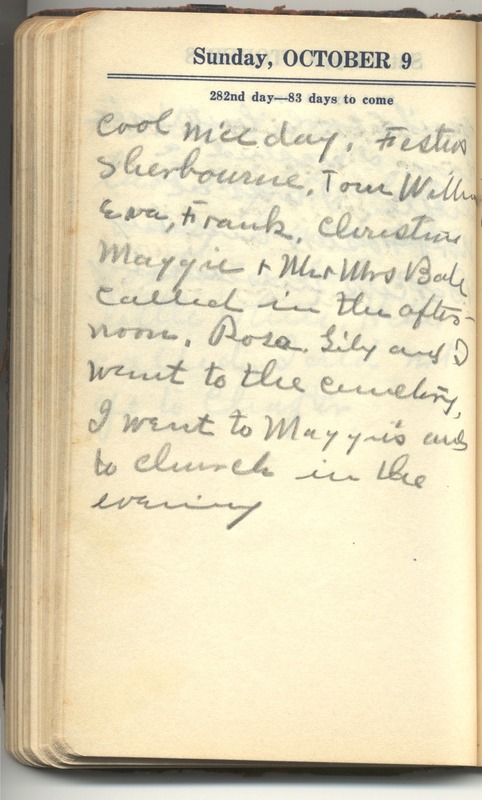 Sunday, OCTOBER 9
282nd day—83 days to come
Cool nice day. Festus
Sherbourne, Tom
Eva, Frank, Christine
Maggie + Mr + Mrs
called in the after-
noon. Rosa, Lily and I
went to the cemetery,
I went to Maggie's and
to church in the
evening